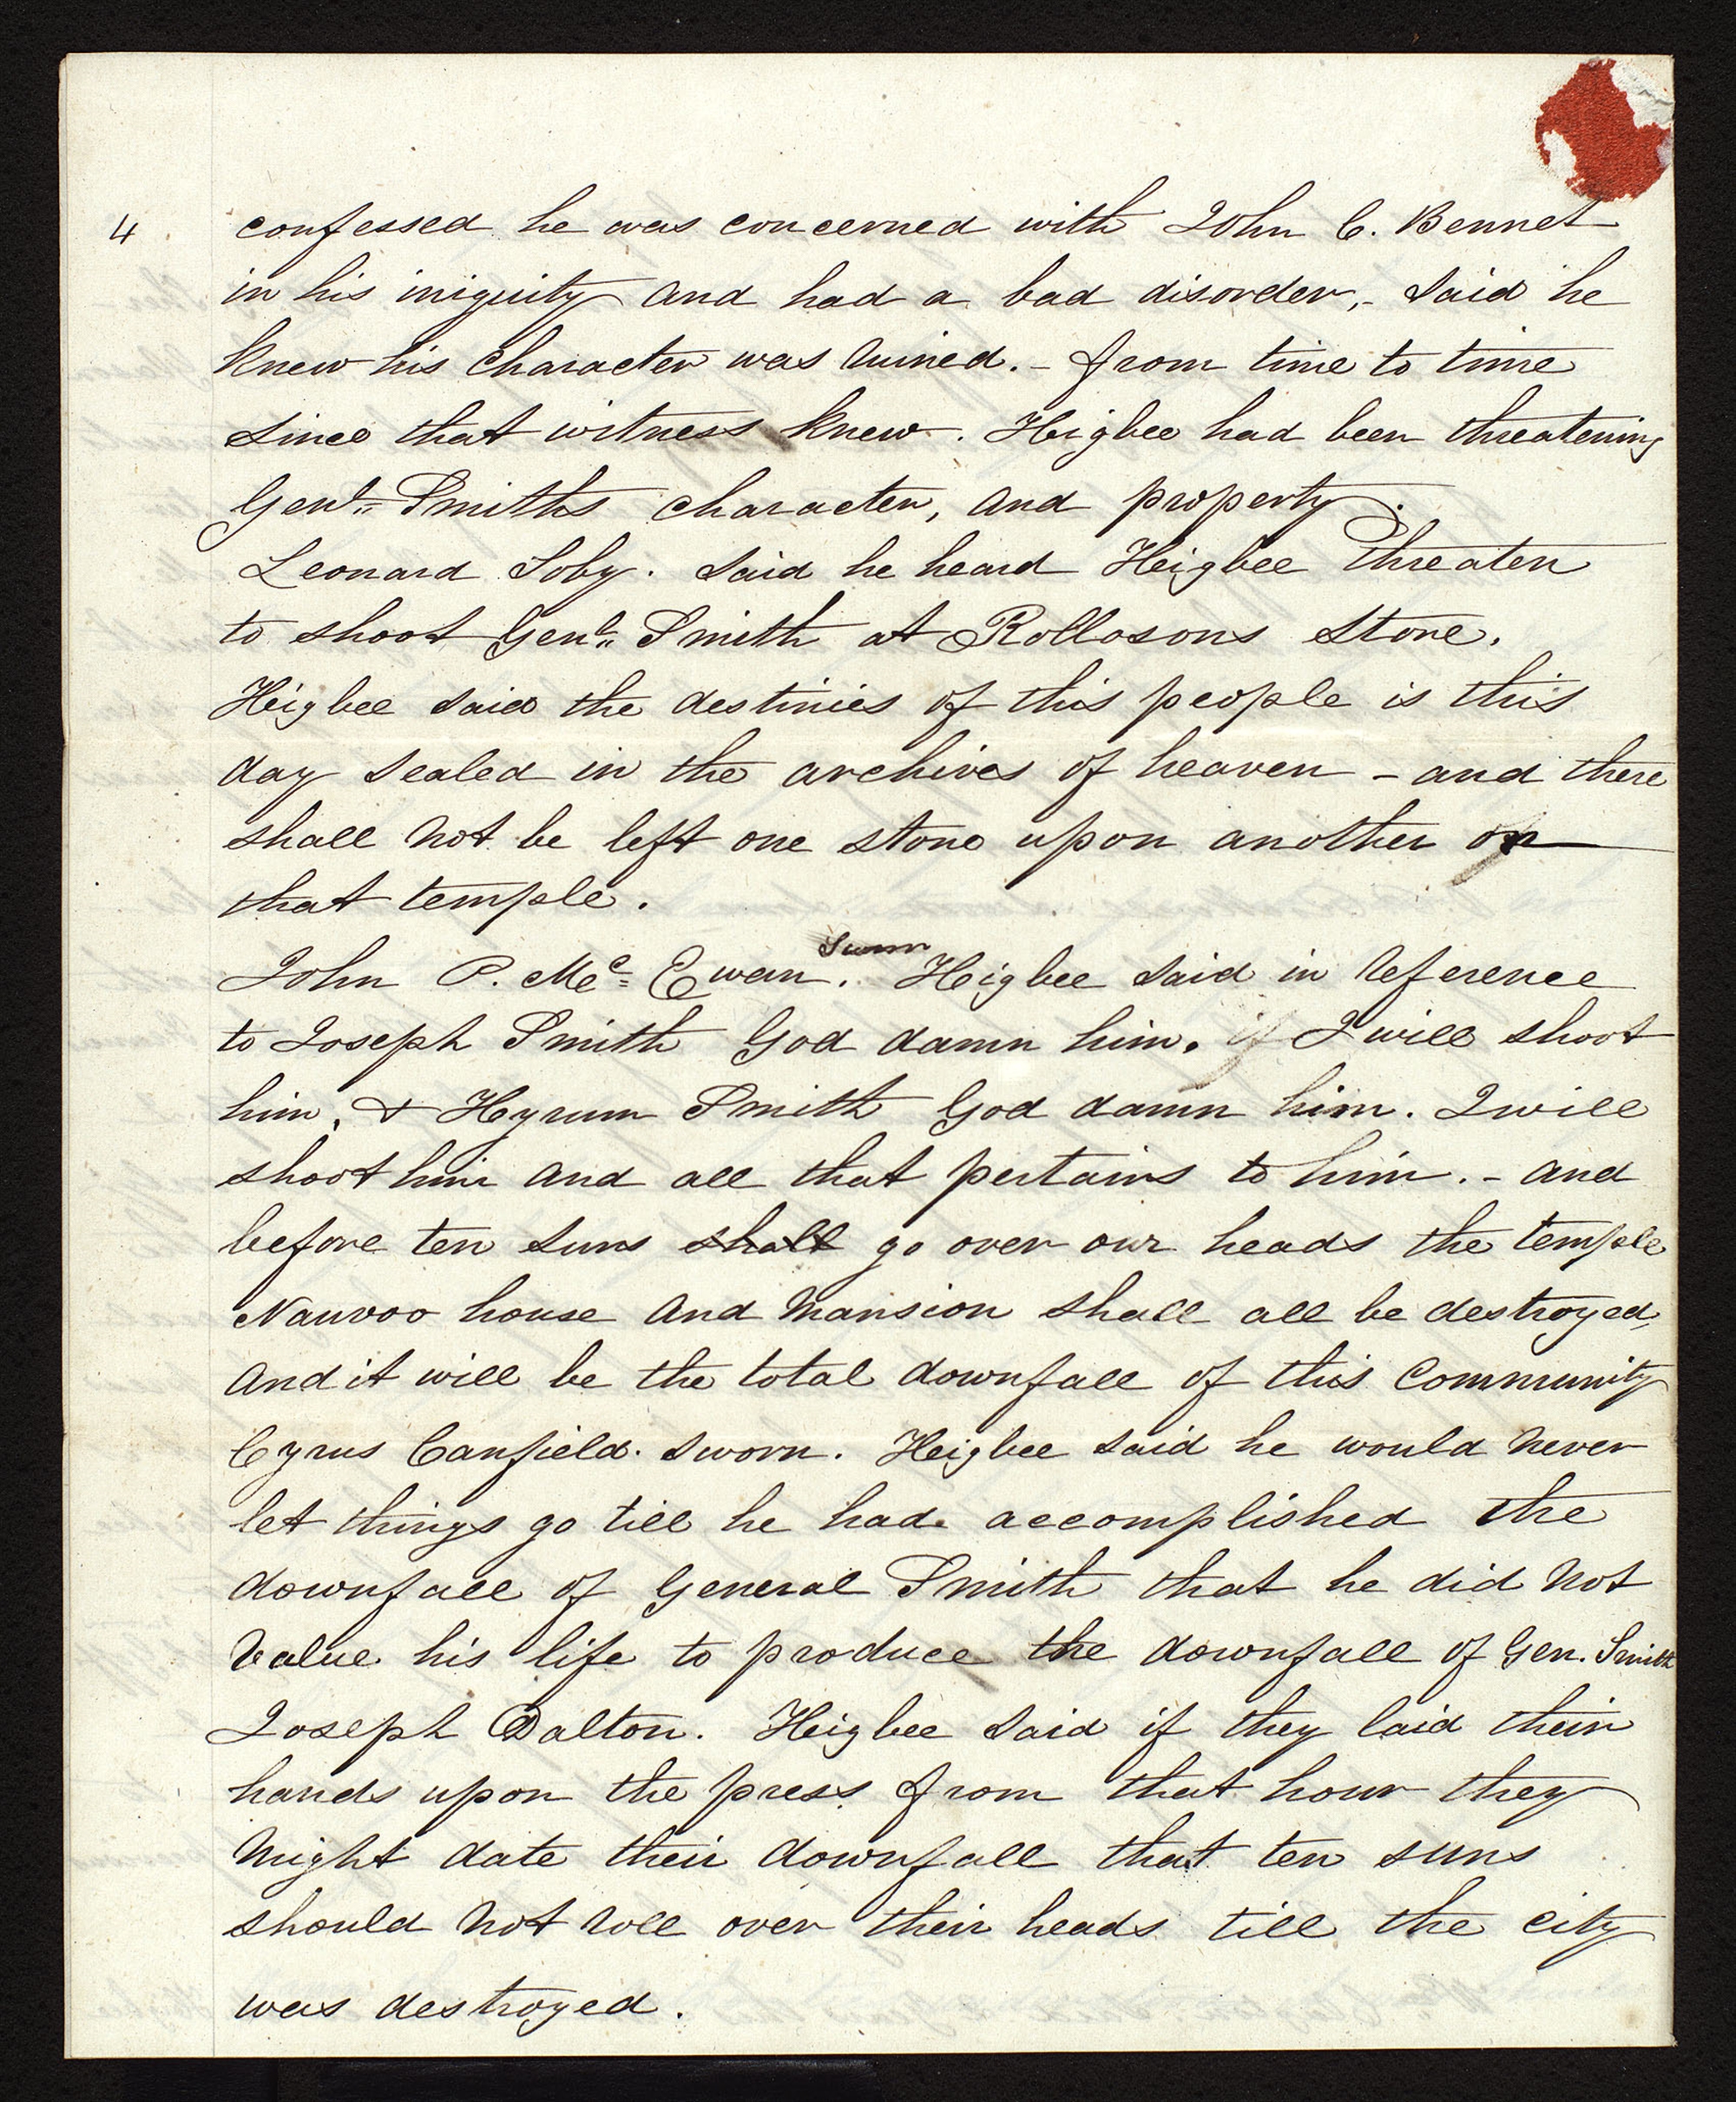 4 confessed he was concerned with John C. Bennet
in his iniquity and had a bad disorder,- said he
knew his character was ruined.- from time to time
since that witness knew. Heigbee had been threatening
Genl. Smiths character, and property.
Leonard Soby. said he heard Heigbee threaten
to shoot Genl. Smith at Rollosons store.
Heigbee said the destinies of this people is this
day sealed in the archives of heaven - and there
shall not be left one stone upon another on
that temple.
John P. Mc. Ewan. Sworn Heigbee said in reference
to Joseph Smith God damn him. if I will shoot
him, & Hyrum Smith God damn him. I will
shoot him and all that pertains to him.- and
before ten suns shall go over our heads the temple
Nauvoo house and Mansion shall all be destroyed,
and it will be the total downfall of this community
Cyrus Canfield. sworn. Heigbee said he would never
let things go till he had accomplished the
downfall of General Smith that he did not
value his life to produce the downfall of Gen. Smith
Joseph Dalton. Heigbee said if they laid their
hands upon the press from that hour they
might date their downfall that ten suns
should not roll over their heads till the city
was destroyed.